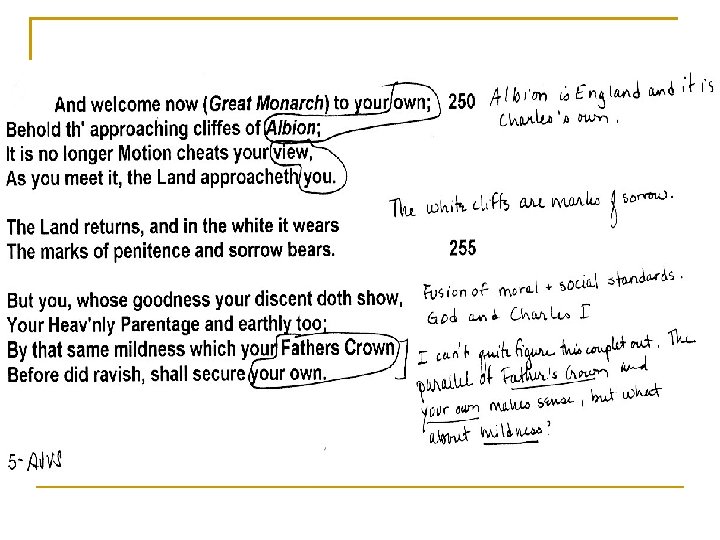 And welcome now (Great Monarch) to your own; 250
Albion is England and it is
Charles's own.
Behold th' approaching cliffes of Albion;
It is no longer Motion cheats your view,
As you meet it, the Land approacheth you.
The white cliffs are marks of sorrow.
The Land returns, and in the white it wears
The marks of penitence and sorrow bears. 255
But you, whose goodness your discent doth show,
Your Heav'nly Parentage and earthly too;
Fusion of moral + social standards.
God and Charles I
By that same mildness which your Fathers Crown
Before did ravish, shall secure your own.
I can't quite figure this couplet out. The
parallel of Father's Crown and
your own makes sense, but what
about mildness?